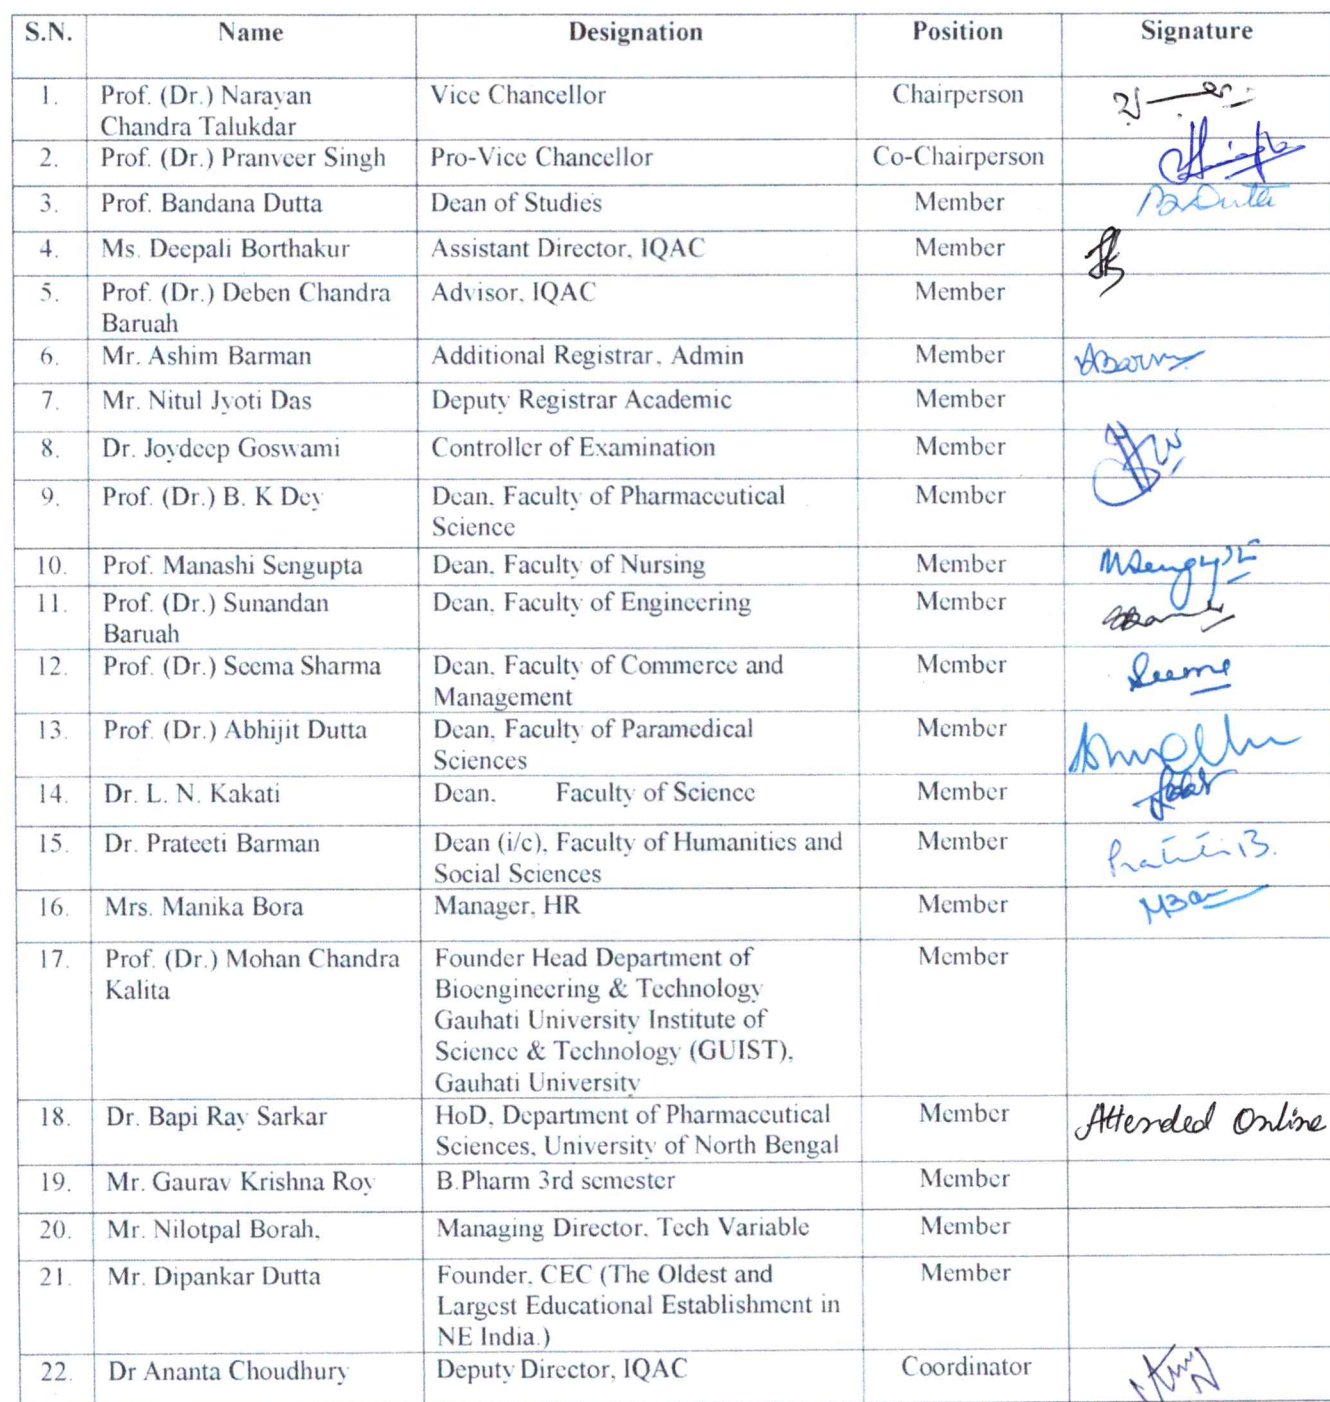 S.N. Name Designation Position Signature
1. Prof. (Dr.) Narayan Vice Chancellor Chairperson
Chandra Talukdar
2. Prof. (Dr.) Pranveer Singh Pro-Vice Chancellor Co-Chairperson
3. Prof. Bandana Dutta Dean of Studies Member B. Dutta
4. Ms. Deepali Borthakur Assistant Director, IQAC Member
5. Prof. (Dr.) Deben Chandra Advisor, IQAC Member
Baruah
6. Mr. Ashim Barman Additional Registrar, Admin Member
7. Mr. Nitul Jyoti Das Deputy Registrar Academic Member
8. Dr. Joydeep Goswami Controller of Examination Member
9. Prof. (Dr.) B. K Dey Dean, Faculty of Pharmaceutical Member
Science
10. Prof. Manashi Sengupta Dean, Faculty of Nursing Member
11. Prof. (Dr.) Sunandan Dean, Faculty of Engineering Member
Baruah
12. Prof. (Dr.) Seema Sharma Dean, Faculty of Commerce and Member
Management
13. Prof. (Dr.) Abhijit Dutta Dean, Faculty of Paramedical Member
Sciences
14. Dr. L. N. Kakati Dean, Faculty of Science Member
15. Dr. Prateeti Barman Dean (i/c), Faculty of Humanities and Member
Social Sciences
16. Mrs. Manika Bora Manager, HR Member
17. Prof. (Dr.) Mohan Chandra Founder Head Department of Member
Kalita Bioengineering & Technology
Gauhati University Institute of
Science & Technology (GUIST),
Gauhati University
18. Dr. Bapi Ray Sarkar HoD, Department of Pharmaceutical Member Attended Online
Sciences, University of North Bengal
19. Mr. Gaurav Krishna Roy B.Pharm 3rd semester Member
20. Mr. Nilotpal Borah, Managing Director, Tech Variable Member
21. Mr. Dipankar Dutta Founder, CEC (The Oldest and Member
Largest Educational Establishment in
NE India.)
22. Dr Ananta Choudhury Deputy Director, IQAC Coordinator